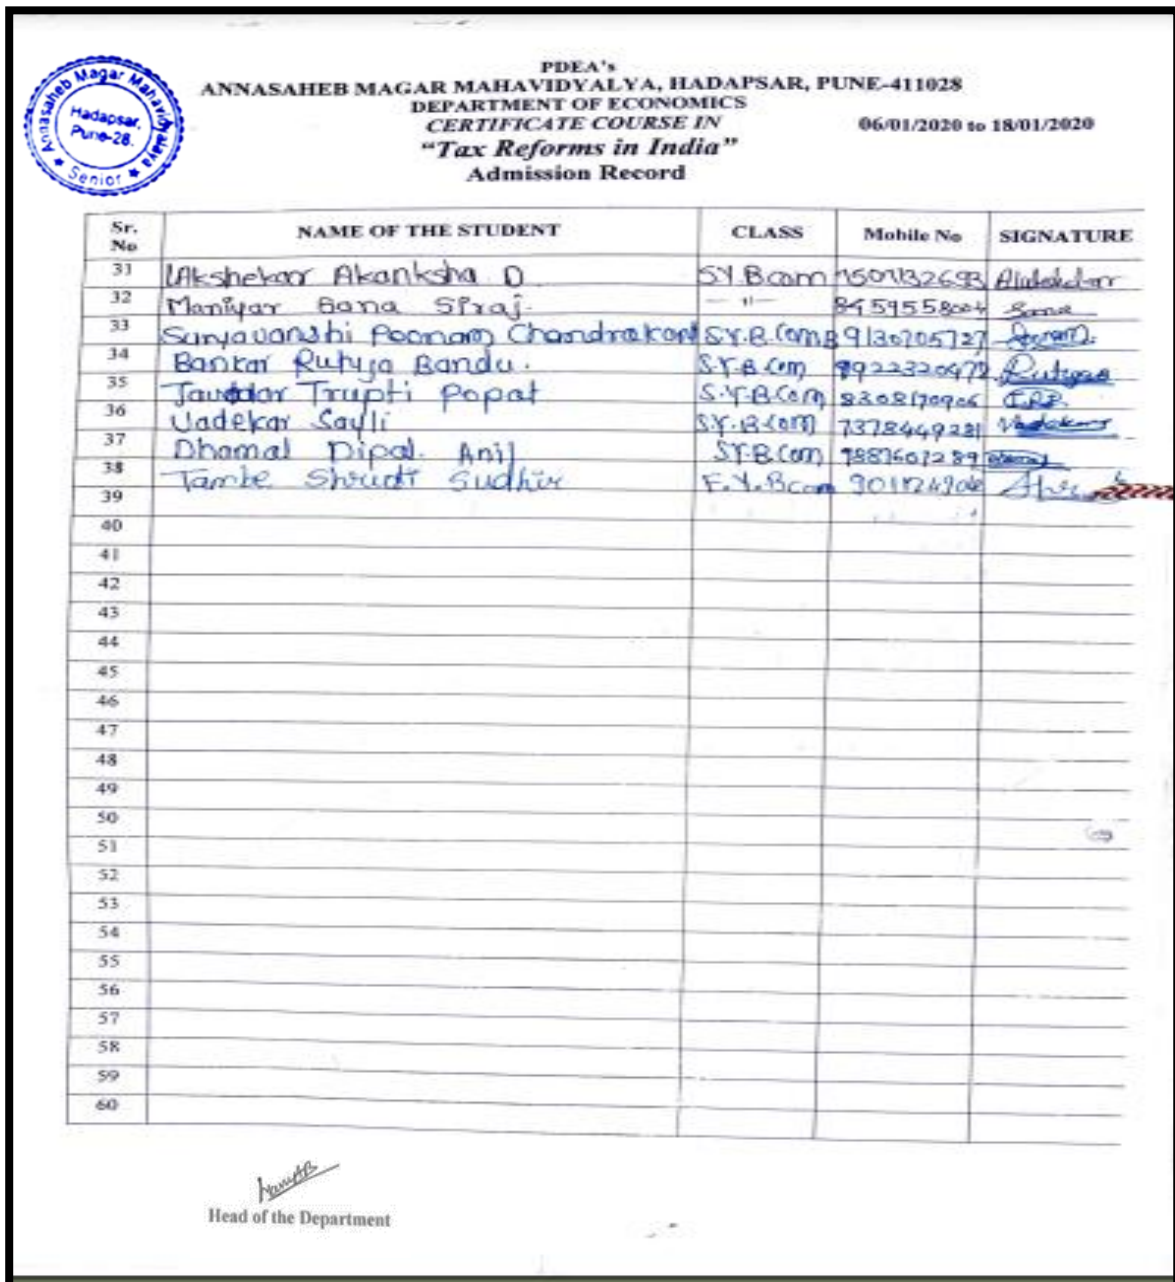 Annasaheb Magar Mahavidyalaya
Hadapsar,
Pune-28.
★ Senior ★
PDEA's
ANNASAHEB MAGAR MAHAVIDYALYA, HADAPSAR, PUNE-411028
DEPARTMENT OF ECONOMICS
CERTIFICATE COURSE IN 06/01/2020 to 18/01/2020
"Tax Reforms in India"
Admission Record
Sr. No NAME OF THE STUDENT CLASS Mobile No SIGNATURE
31 Akshekar Akanksha D SY.Bcom
32 Maniyar Sana Siraj. — 11 — 8459558004 Sana
33 Suryavanshi Poonam Chandrakant S.Y.B.Com 9130705727
34 Bankar Rutuja Bandu. S.Y.B.Com 9922320972 Rutuja
35 Trupti Popat S.Y.B.Com 8308170906
36 Vadekar Sayli S.Y.B.Com 7378449281
37 Dhamal Dipal. Anil S.Y.B.Com
38 Tambe Shruti Sudhir F.Y.Bcom
39
40
41
42
43
44
45
46
47
48
49
50
51
52
53
54
55
56
57
58
59
60
Head of the Department